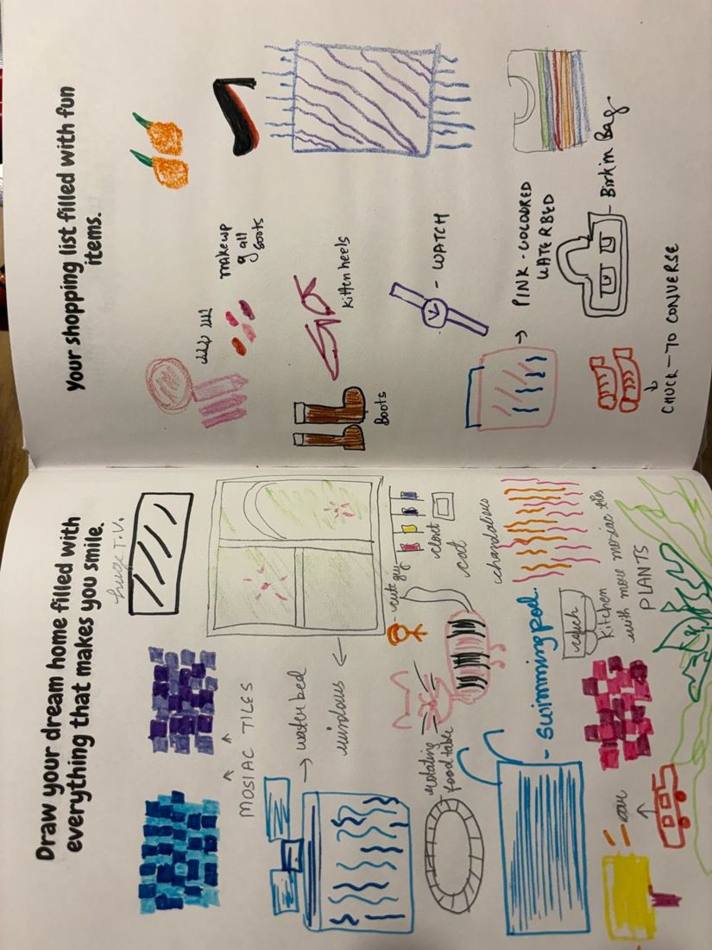 Draw your dream home filled with
everything that makes you smile.
huge T.V.
MOSIAC TILES
→ water bed
windows
cute guy
closet
cat
rotating
food table
chandaliers
- Swimming pool
couch
Kitchen
with more mosiac tiles
PLANTS
car
Your shopping list filled with fun
items.
makeup
of all
sorts
Kitten heels
Boots
- WATCH
→ PINK - COLOURED
WATERBED
- Birkin Bag.
CHUCK - 70 CONVERSE